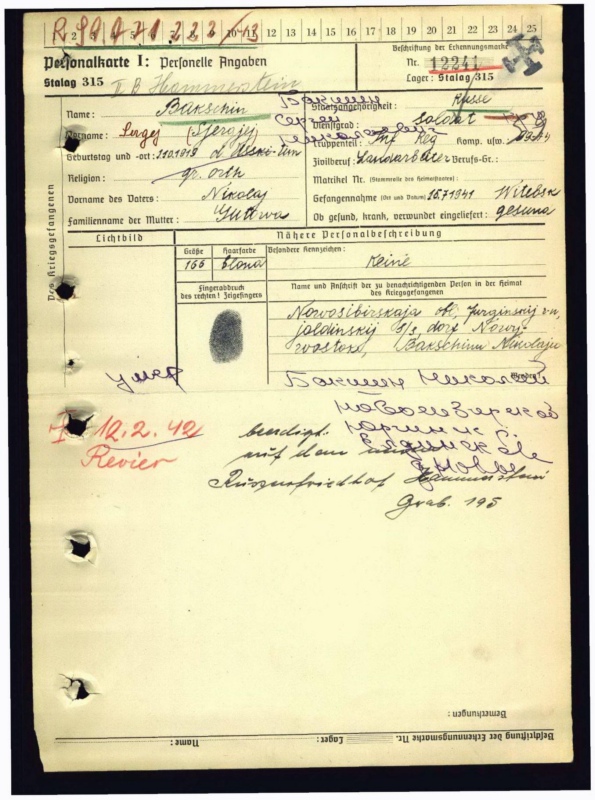 2 3 4 5 6 7 8 9 10 11 12 13 14 15 16 17 18 19 20 21 22 23 24 25
Personalkarte I: Personelle Angaben
Beschriftung der Erkennungsmarke
Nr. 12241
Stalag 315 II B Hammerstein
Lager: Stalag 315
Des Kriegsgefangenen
Name: Bakschin Бакшин
Staatsangehörigkeit: Russe
Vorname: Sergej (Sjergjej) Сергей
Dienstgrad: Soldat
Николаевич
Truppenteil: Inf Reg Komp. usw.:
Geburtstag und -ort:
Zivilberuf: Landarbeiter Berufs-Gr.:
Religion: gr. orth
Matrikel Nr. (Stammrolle des Heimatstaates):
Vorname des Vaters: Nikolaj
Gefangennahme (Ort und Datum): 15.7.1941 Witebsk
Familienname der Mutter: Gutowa
Ob gesund, krank, verwundet eingeliefert: gesund
Lichtbild
Nähere Personalbeschreibung
Größe Haarfarbe Besondere Kennzeichen:
166 blond Keine
Fingerabdruck
des rechten! Zeigefingers
Name und Anschrift der zu benachrichtigenden Person in der Heimat
des Kriegsgefangenen
Nowosibirskaja obl, Jurginskij
dorf Nowy-
wostok, Bakschinu Nikolaju
умер
Бакшин Николай
12.2.42
Revier
beerdigt
auf dem
Russenfriedhof Hammerstein
Grab. 195
Bemerkungen:
Beschriftung der Erkennungsmarke Nr. Lager: Name: